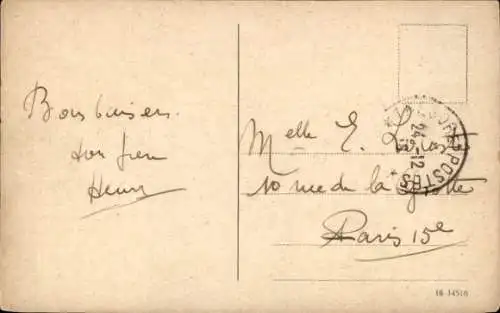 Bons baisers.
ton frère
Henry
Melle E.
10 rue de la Grotte
Paris 15e
POSTES
24-12
18 34516